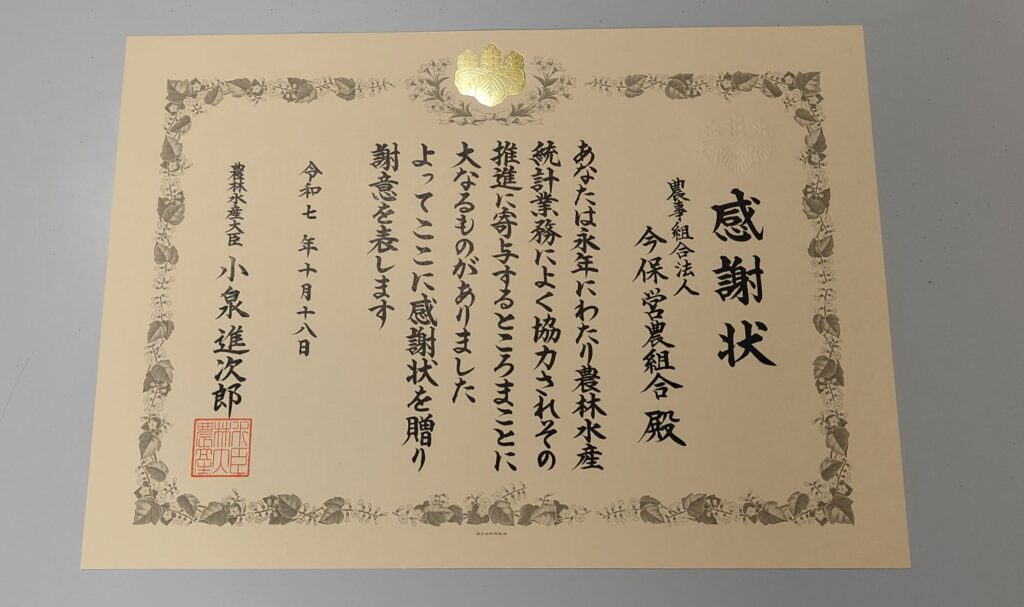 感謝状
農事組合法人
今保営農組合 殿
あなたは永年にわたり農林水産
統計業務によく協力されその
推進に寄与するところまことに
大なるものがありました
よってここに感謝状を贈り
謝意を表します
令和七 年十月十八日
農林水産大臣 小泉 進次郎